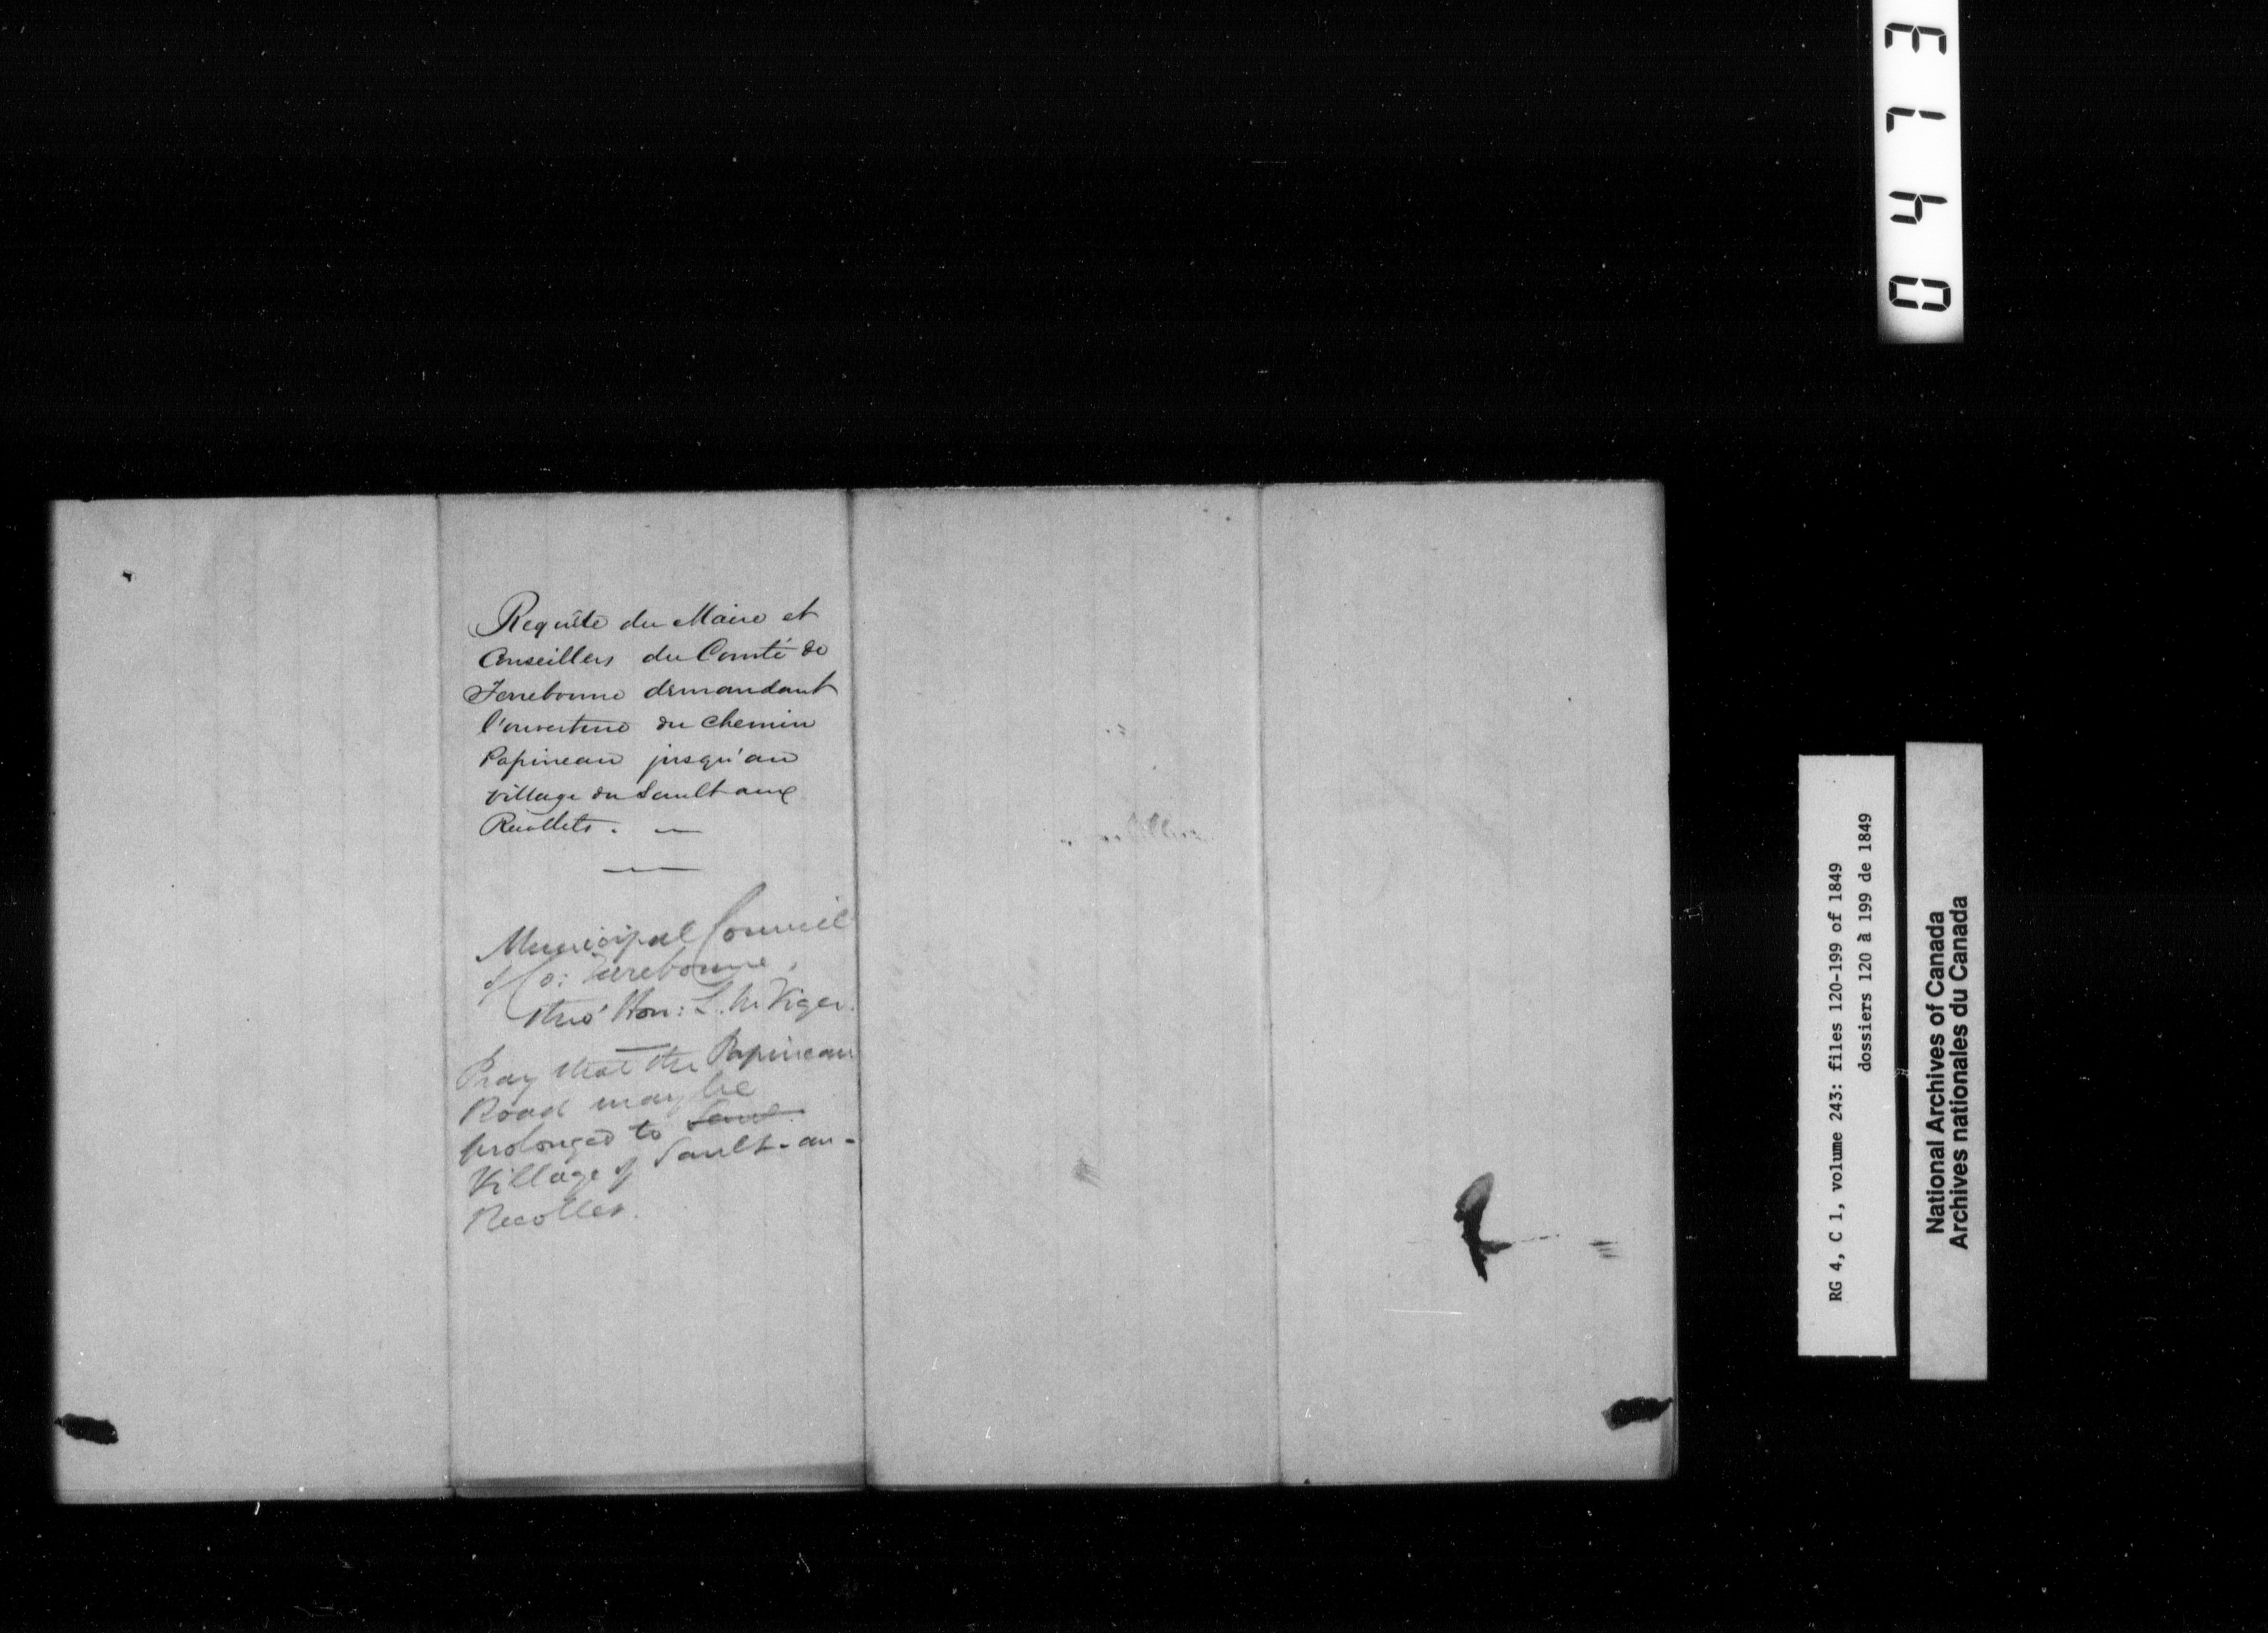 Requête du Maire et
Conseillers du Comté de
Terrebonne demandant
l'ouverture du Chemin
Papineau jusqu'au
village du Sault aux
Recollets. —
Municipal Council
of Co: Terrebonne,
thro' Hon: L. M. Viger.
Pray that the Papineau
Road may be
prolonged to Sault
Village of Sault-au-
Recollet.
0413
RG 4, C 1, volume 243: files 120-199 of 1849
dossiers 120 à 199 de 1849
National Archives of Canada
Archives nationales du Canada